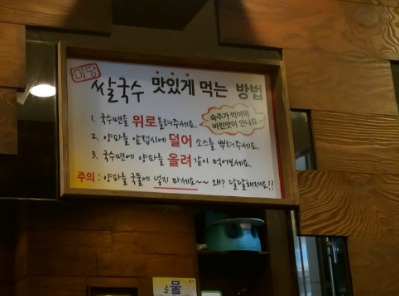 미담
쌀국수 맛있게 먹는 방법
1. 국수면을 위로 올려주세요.
숙주가 익어야
비린맛이 안나요
2. 양파를 앞접시에 덜어 소스를 뿌려주세요.
3. 국수면에 양파를 올려 같이 먹어보세요.
주의 : 양파를 국물에 넣지 마세요~~ 왜? 달달해져요!!
물